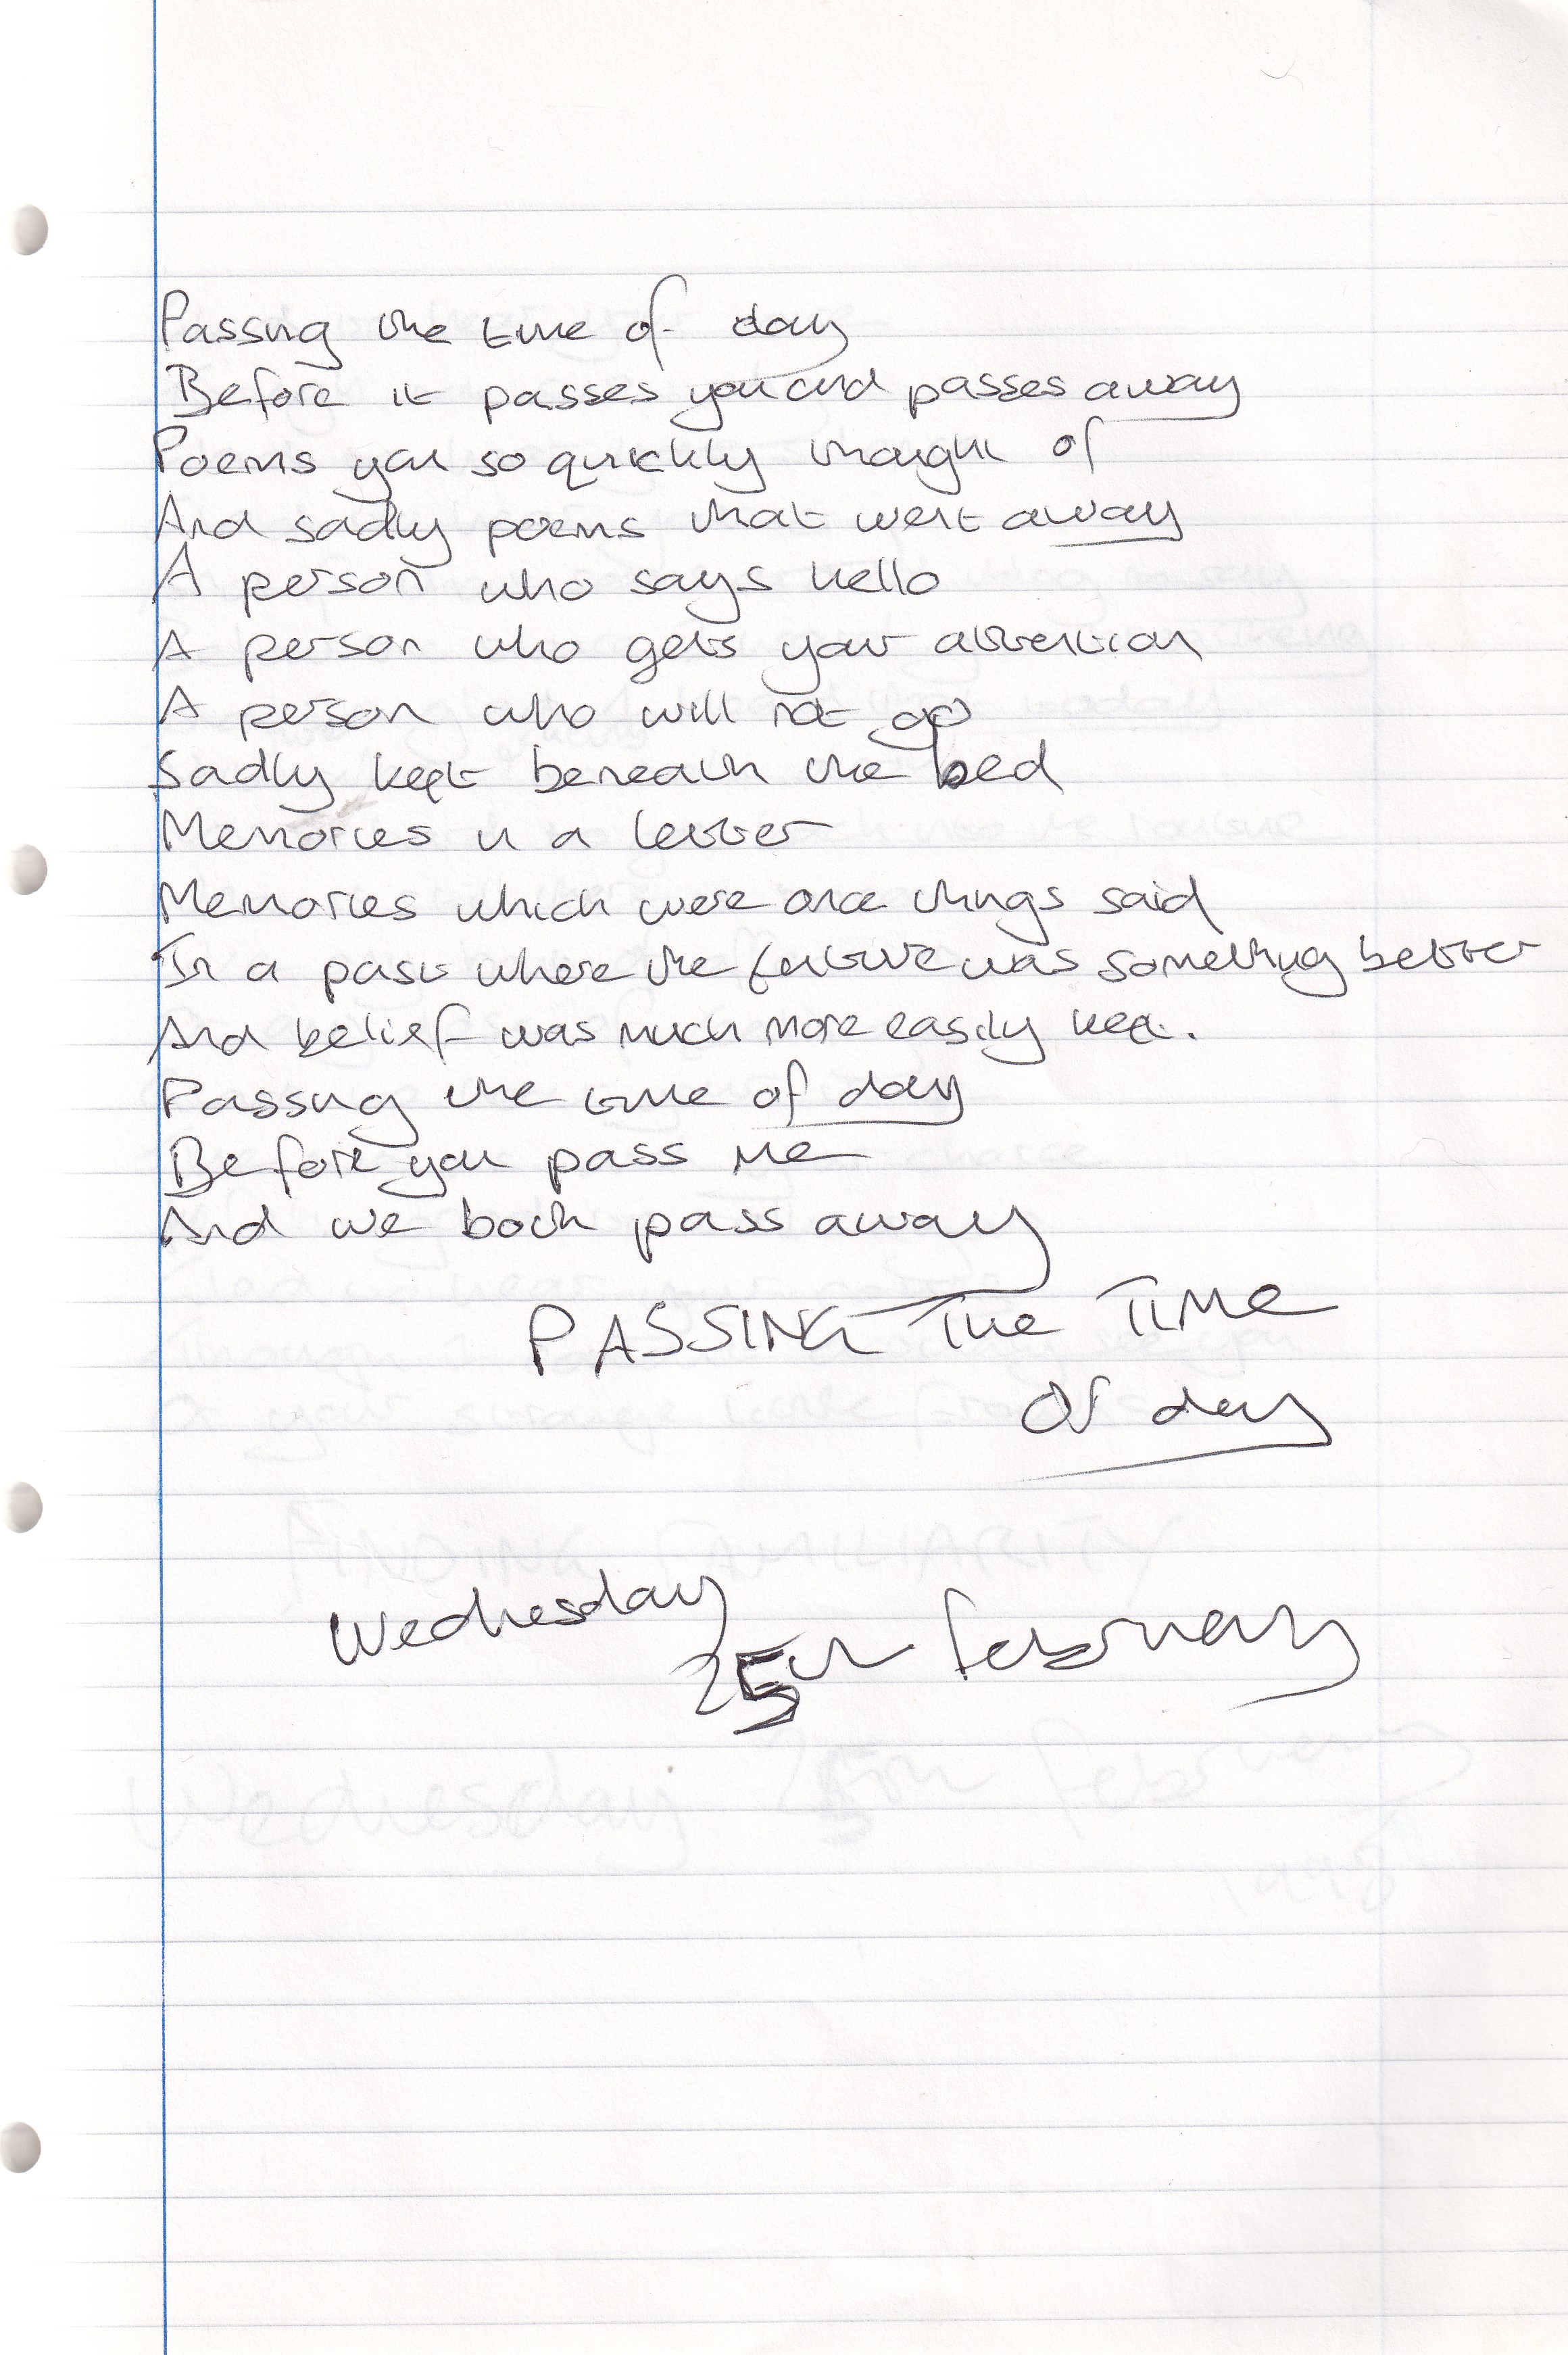 Passing the time of day
Before it passes you and passes away
Poems you so quickly thought of
And sadly poems that went away
A person who says hello
A person who gets your attention
A person who will not go
Sadly kept beneath the bed
Memories in a letter
Memories which were once things said
In a past where the future was something better
And belief was much more easily kept.
Passing the time of day
Before you pass me
And we both pass away
PASSING THE TIME
Of day
Wednesday
25th February